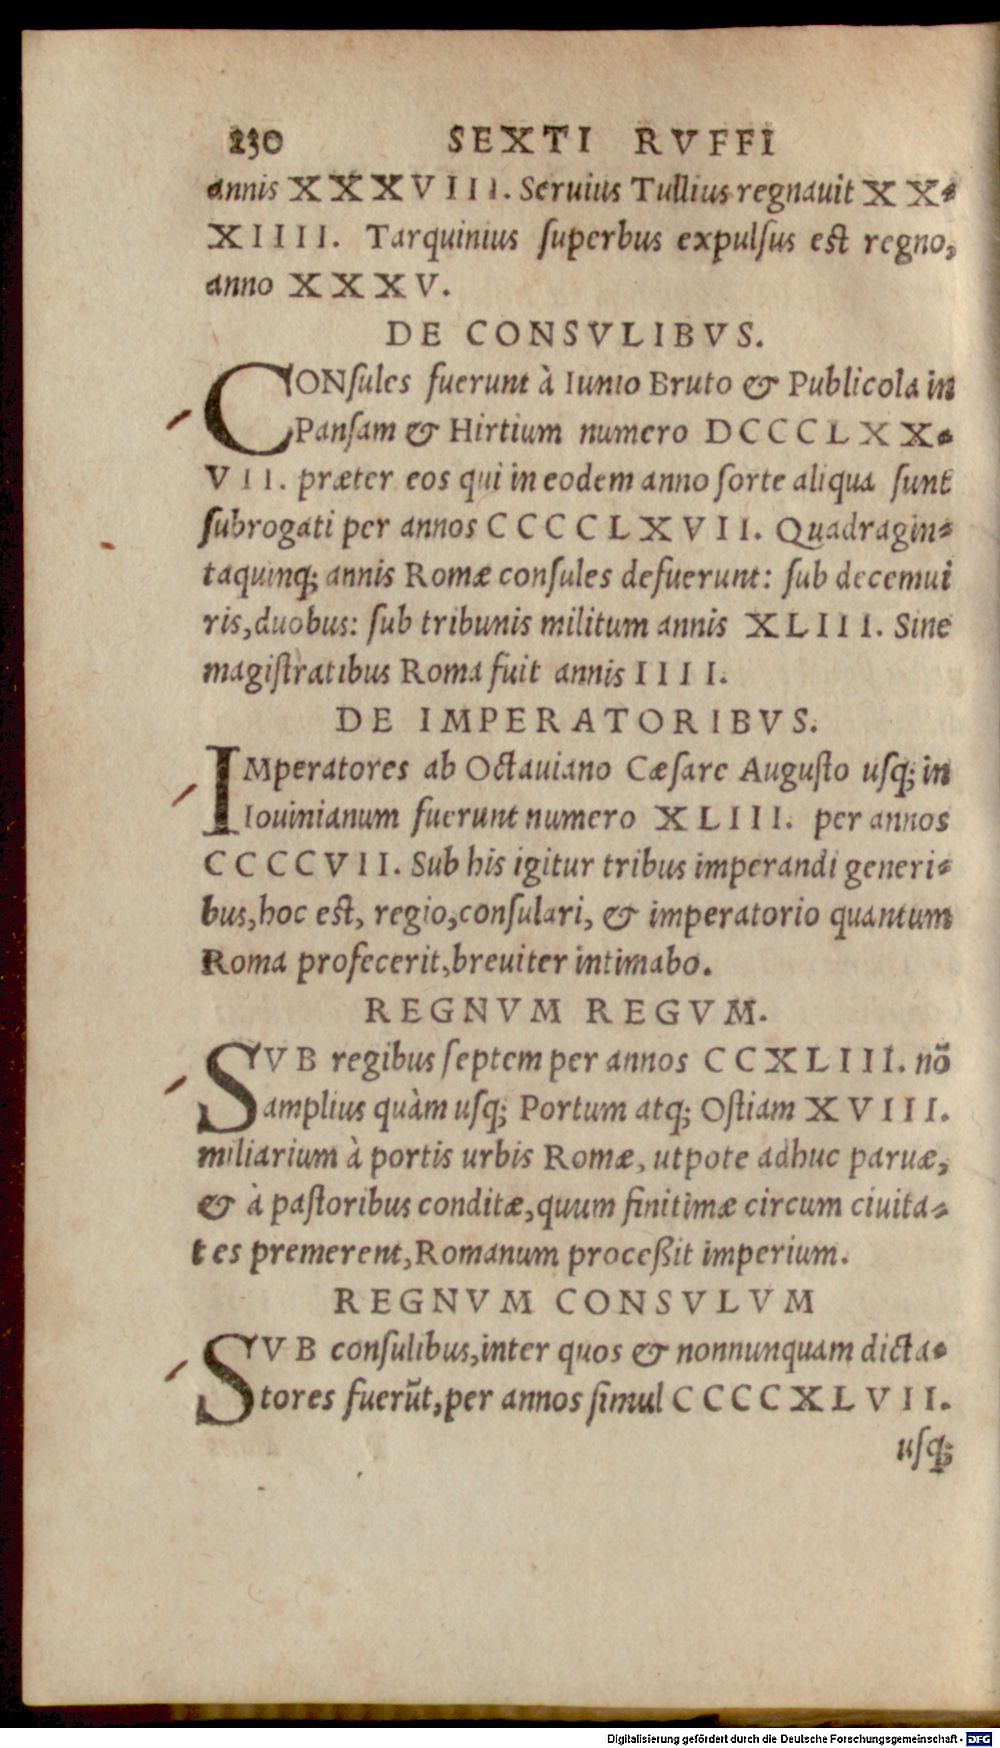 230 SEXTI RVFFI
annis XXXVIII. Seruius Tullius regnauit XX-
XIIII. Tarquinius ſuperbus expulſus eſt regno,
anno XXXV.
DE CONSVLIBVS.
CONſules fuerunt à Iunio Bruto & Publicola in
Panſam & Hirtium numero DCCCLXX-
VII. præter eos qui in eodem anno ſorte aliqua ſunt
ſubrogati per annos CCCCLXVII. Quadragin-
taquinq; annis Romæ conſules defuerunt: ſub decemui
ris, duobus: ſub tribunis militum annis XLIII. Sine
magiſtratibus Roma fuit annis IIII.
DE IMPERATORIBVS.
IMperatores ab Octauiano Cæſare Auguſto uſq; in
Iouinianum fuerunt numero XLIII. per annos
CCCCVII. Sub his igitur tribus imperandi generi-
bus, hoc eſt, regio, conſulari, & imperatorio quantum
Roma profecerit, breuiter intimabo.
REGNVM REGVM.
SVB regibus ſeptem per annos CCXLIII. nõ
amplius quàm uſq; Portum atq; Oſtiam XVIII.
miliarium à portis urbis Romæ, utpote adhuc paruæ,
& à paſtoribus conditæ, quum finitimæ circum ciuita-
tes premerent, Romanum proceßit imperium.
REGNVM CONSVLVM
SVB conſulibus, inter quos & nonnunquam dicta-
tores fuerũt, per annos ſimul CCCCXLVII.
uſq;
Digitalisierung gefördert durch die Deutsche Forschungsgemeinschaft - DFG